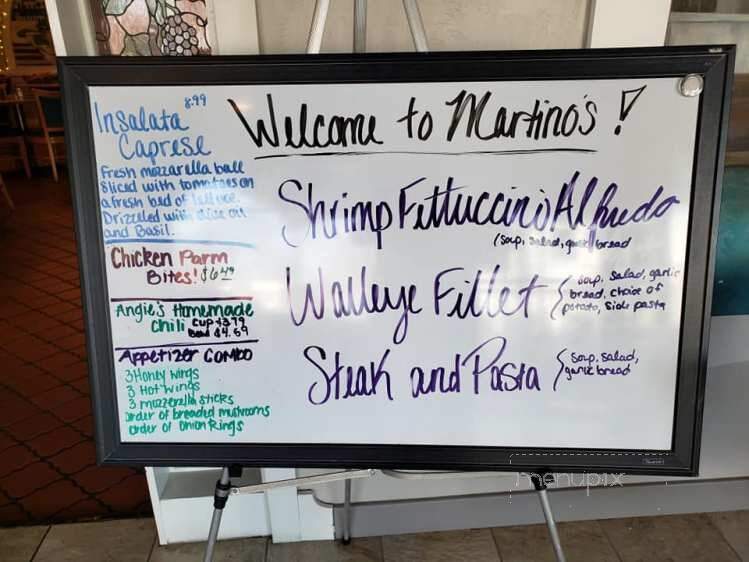 Insalata 8.99
Caprese
Fresh mozzarella ball
Sliced with tomatoes on
a fresh bed of lettuce.
Drizzled with olive oil
and Basil.
Chicken Parm
Bites! $6.49
Angie's Homemade
Chili Cup $3.79
Bowl $4.69
Appetizer Combo
3 Honey Wings
3 Hot Wings
3 mozzerella sticks
order of breaded mushrooms
order of Onion Rings
Welcome to Martino's!
Shrimp Fettuccini Alfredo
(soup, salad, garlic bread
Walleye Fillet
soup, salad, garlic
bread, choice of
potato, side pasta
Steak and Pasta
soup, salad,
garlic bread
menupix